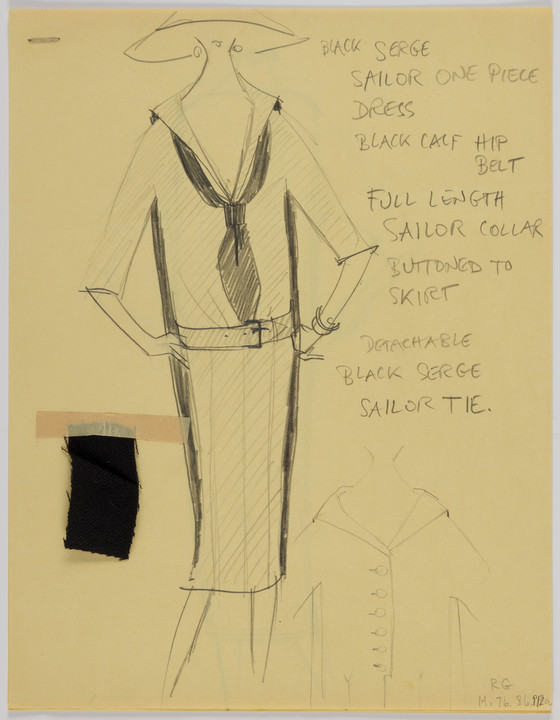 BLACK SERGE
SAILOR ONE PIECE
DRESS
BLACK CALF HIP
BELT
FULL LENGTH
SAILOR COLLAR
BUTTONED TO
SKIRT
DETACHABLE
BLACK SERGE
SAILOR TIE.
RG